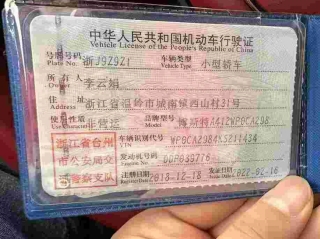 中华人民共和国机动车行驶证
Vehicle License of the People's Republic of China
号牌号码 浙J9Z9Z1 车辆类型 小型轿车
Plate No. Vehicle Type
所有人 李云娟
Owner
住址 浙江省温岭市城南镇西山村31号
Address
使用性质 非营运 品牌型号
Use Character Model
浙江省台州 车辆识别代号
VIN
市公安局交 发动机号码
Engine No.
通警察支队 注册日期 2018-12-18 发证日期
Register Date Issue Date